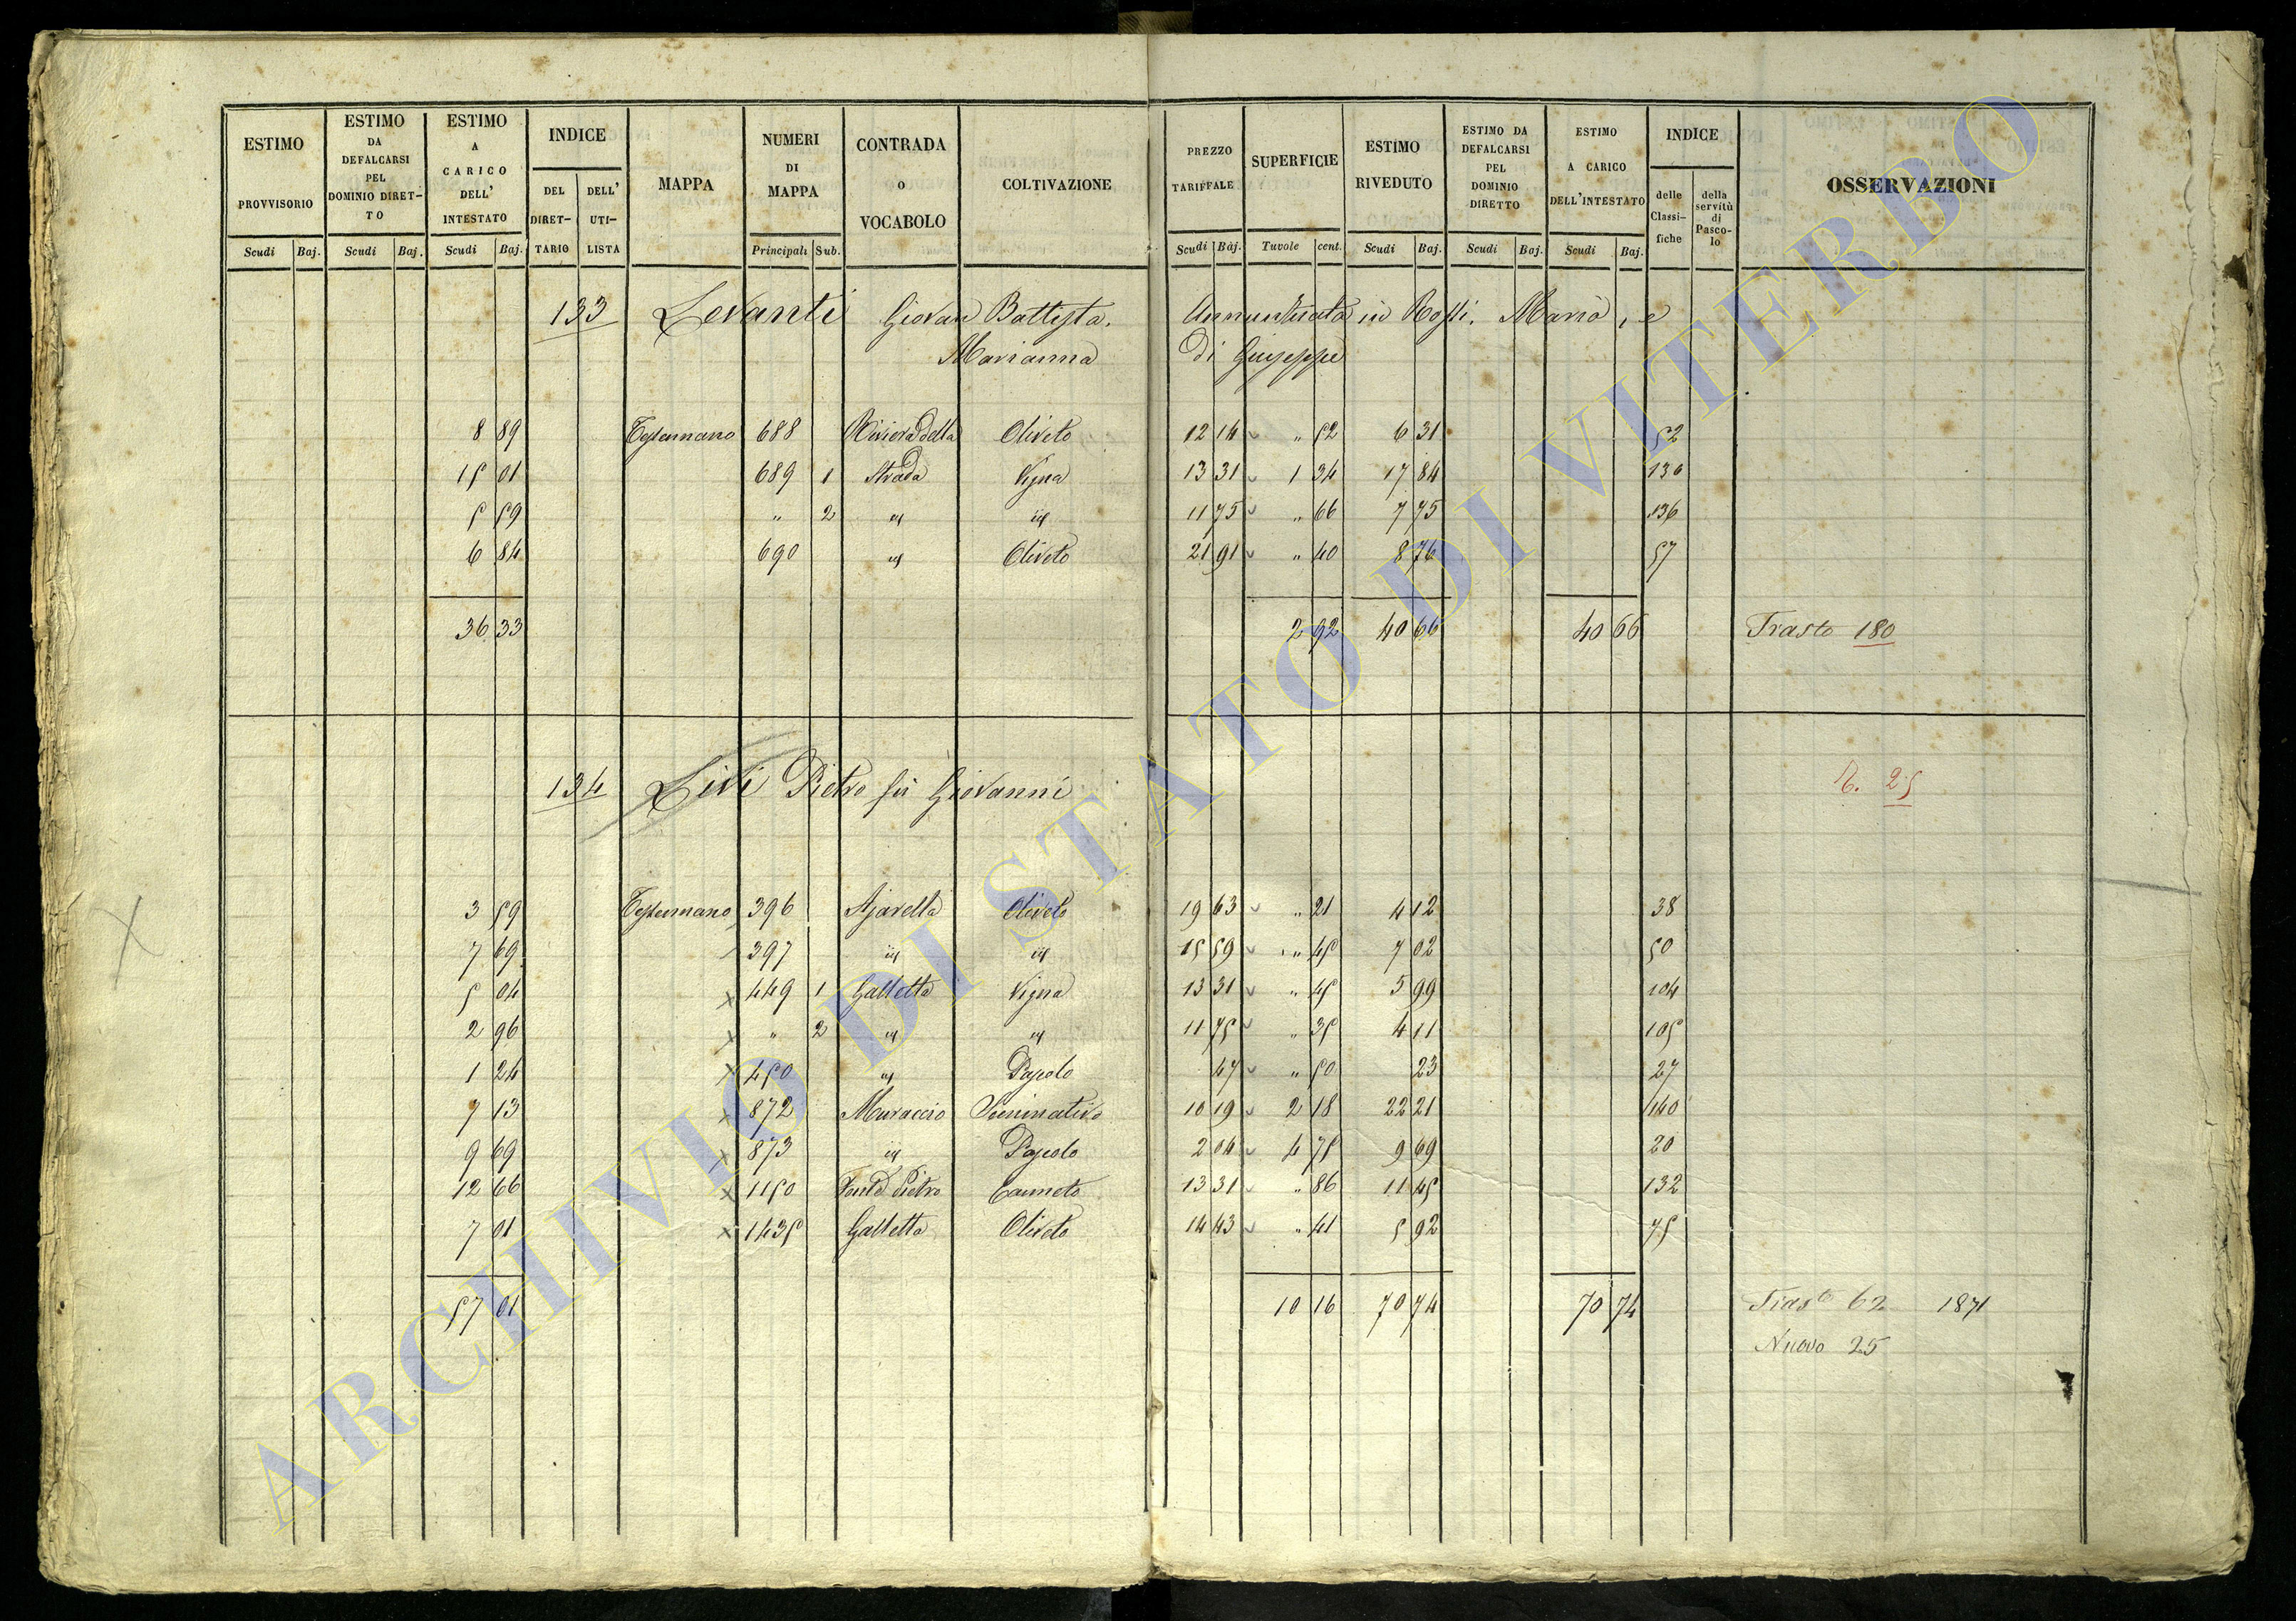 ESTIMO PROVVISORIO Scudi Baj. ESTIMO DA DEFALCARSI PEL DOMINIO DIRET-TO Scudi Baj. ESTIMO A CARICO DELL' INTESTATO Scudi Baj. INDICE DEL DIRET-TARIO DELL' UTI-LISTA MAPPA NUMERI DI MAPPA Principali Sub. CONTRADA O VOCABOLO COLTIVAZIONE PREZZO TARIFFALE Scudi Baj. SUPERFICIE Tavole cent. ESTIMO RIVEDUTO Scudi Baj. ESTIMO DA DEFALCARSI PEL DOMINIO DIRETTO Scudi Baj. ESTIMO A CARICO DELL'INTESTATO Scudi Baj. INDICE delle Classi-fiche della servitù di Pasco-lo OSSERVAZIONI
133 Levanti Giovan Battista. Annunziata in Rossi. Maria, e
Marianna di Giuseppe
8 89 688 Riviera della Oliveto 12 14 " 52 6 31 52
15 01 689 1 Strada Vigna 13 31 1 34 17 84 136
5 59 " 2 id id 11 75 " 66 7 75 136
6 84 690 id Oliveto 21 91 " 40 8 76 57
36 33 2 92 40 66 40 66 Trasto 180
134 Livi Pietro fù Giovanni R. 25
3 59 396 Ajarella Oliveto 19 63 " 21 4 12 38
7 69 397 id id 15 59 " 45 7 02 50
5 04 449 1 Galletta Vigna 13 31 " 45 5 99 104
2 96 " 2 id id 11 75 " 35 4 11 105
1 24 450 id Pascolo 47 " 50 23 27
7 13 872 Muraccio Seminativo 10 19 2 18 22 21 140
9 69 873 id Pascolo 2 04 4 75 9 69 20
12 66 1150 Canneto 13 31 " 86 11 45 132
7 01 1435 Galletta Oliveto 14 43 " 41 5 92 75
57 01 10 16 70 74 70 74 Trasto 62 1871
Nuovo 25
ARCHIVIO DI STATO DI VITERBO